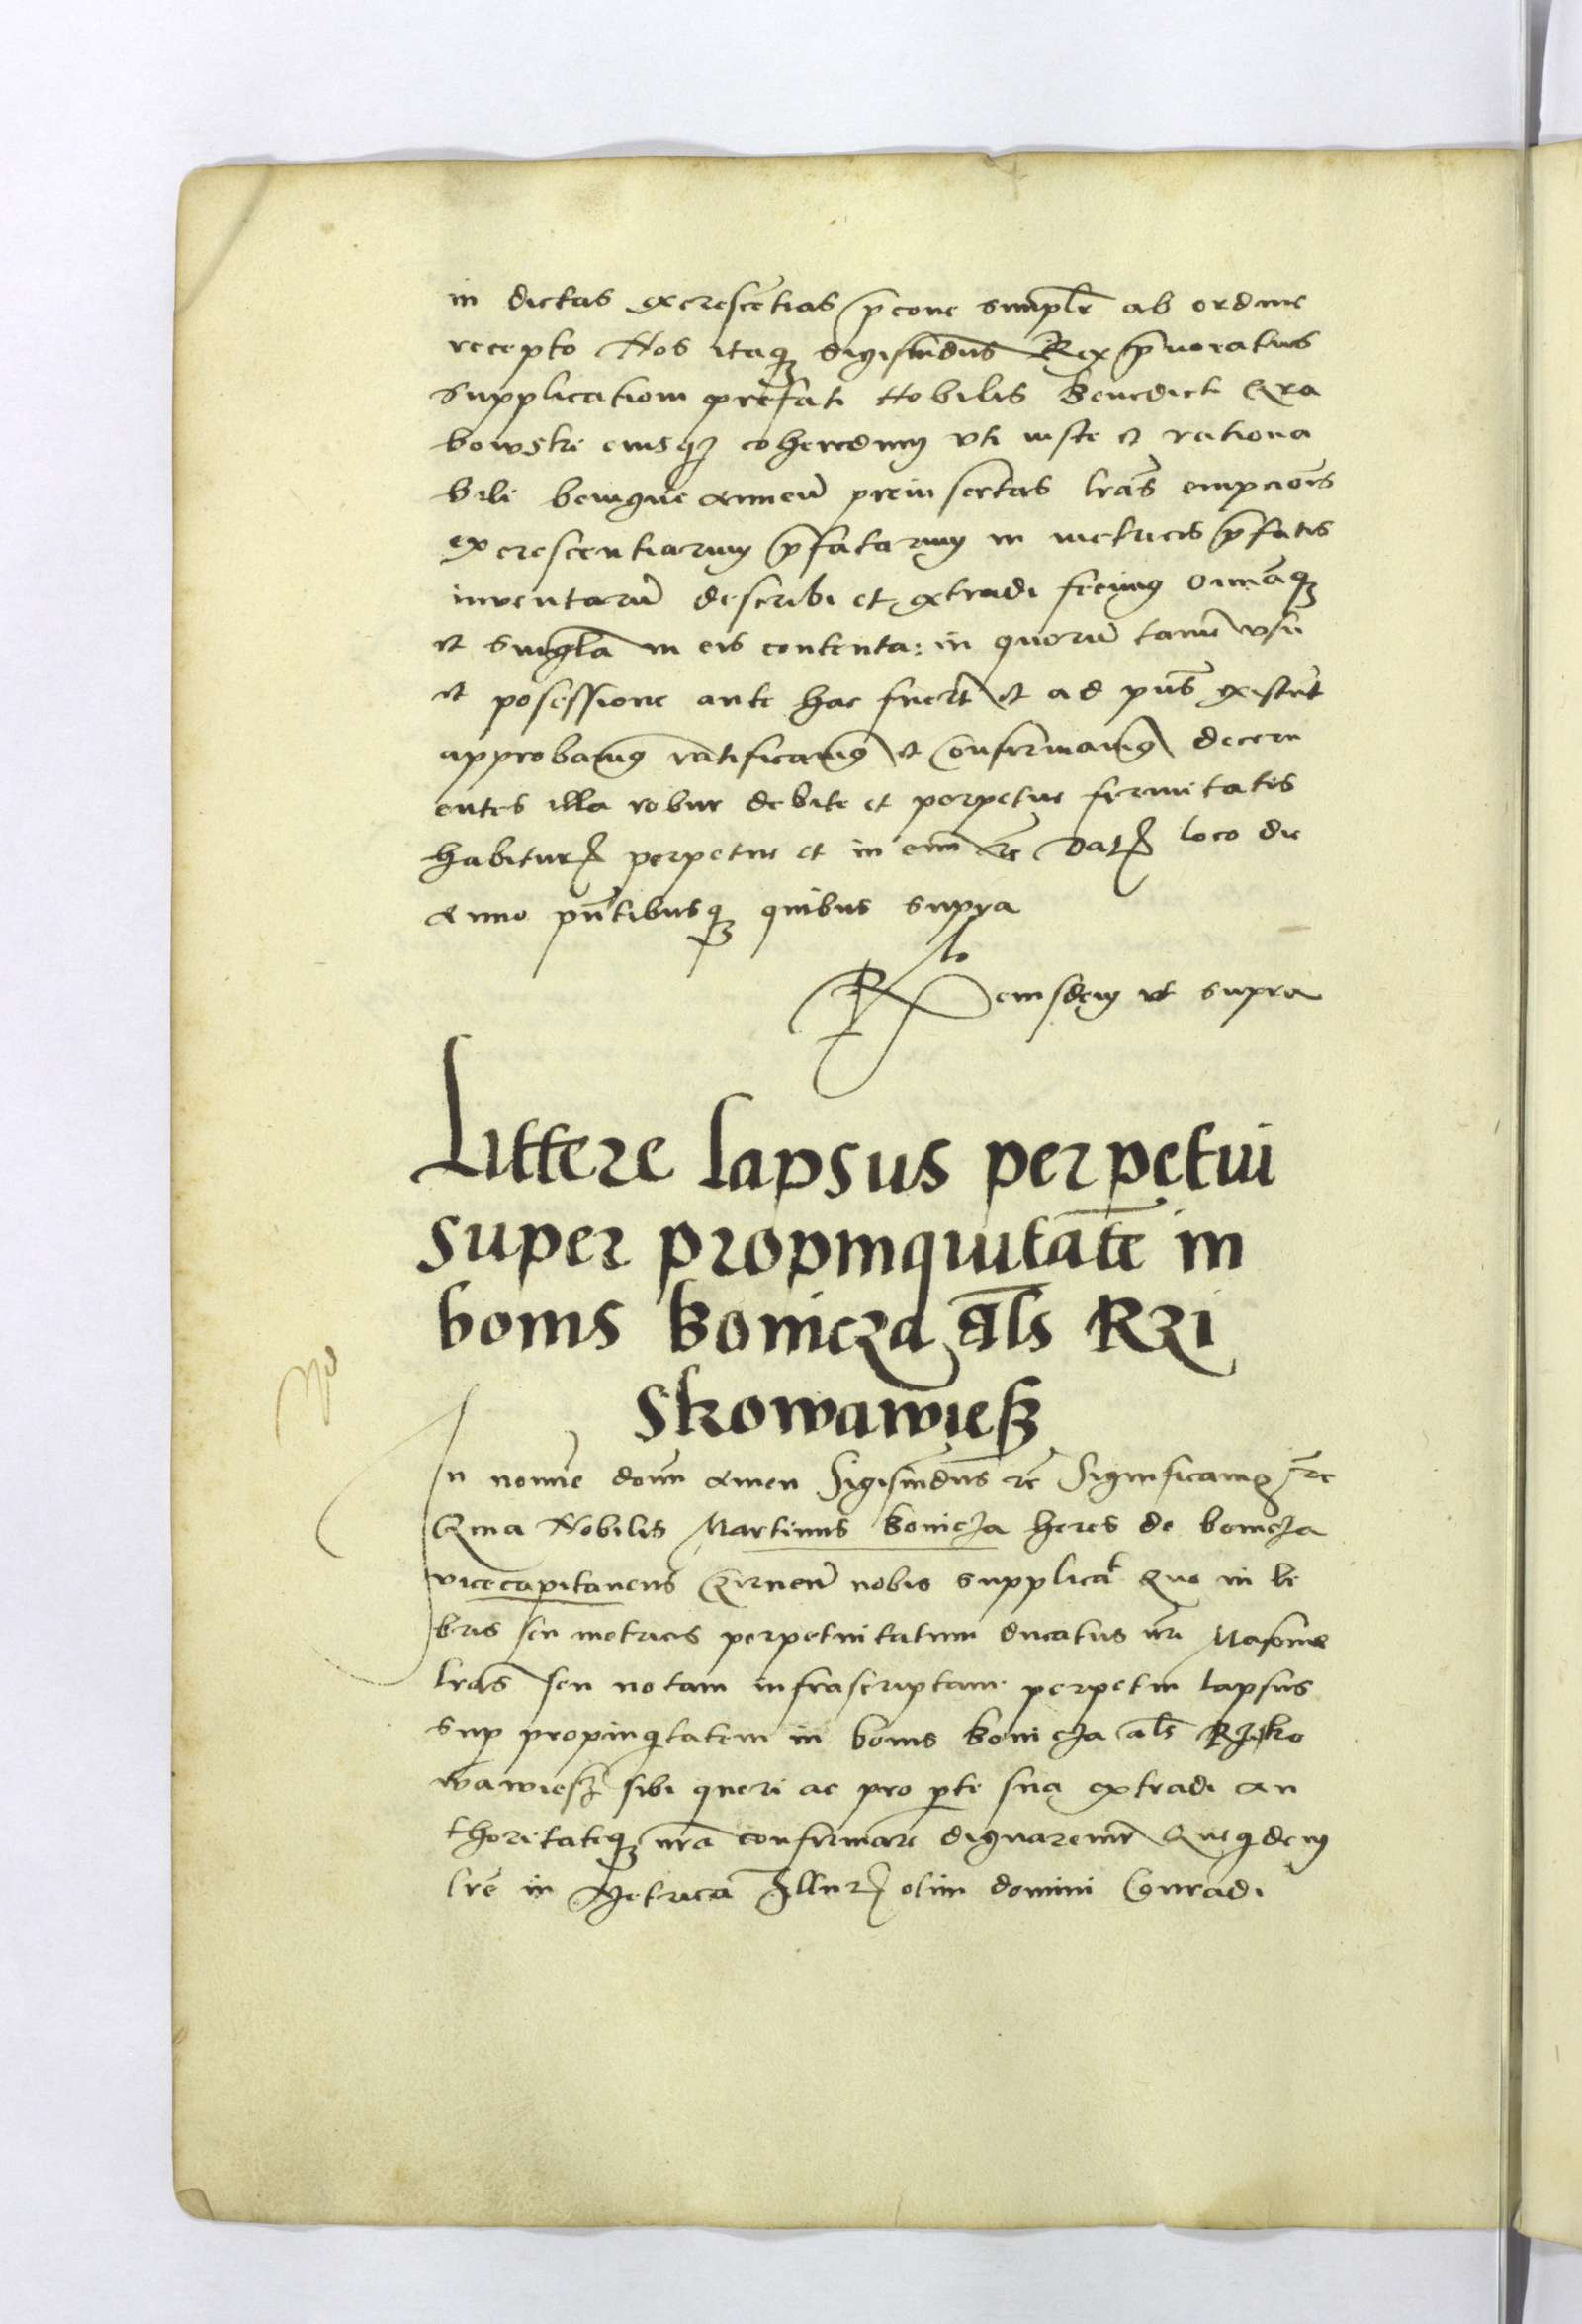 in dictas excrescẽtias p̃cone simplr̃ ab ordine
recepto Nos itaqꝫ Sigismũdus Rex p̃uocatus
supplicationi prefati Nobilis Benedicti Gra
bowski eiusqꝫ coheredum vti iuste et rationa
bili benigne annueñ preinsertas lr̃as empcio͂is
excrescentiarum p̃fatarum in metricis p̃fatis
inuentarũ describi et extradi fecimꝰ Om̃iaqꝫ
et singl̃a in eis contenta: in quorũ tam̃ vsu
et posessione ante hac fuer̃t et ad pñs existũt
approbamꝰ ratificamꝰ et confirmamꝰ decern
entes illa robur debite et perpetue firmitatis
habiturꝭ perpetue et in euũ etc̃ Datꝭ loco die
Anno pñtibusqꝫ quibus supra
Rlo eiusdem vt supra
Littere lapsus perpetui
super propinquitatẽ in
bonis Bonicza al̃s Rzi
skowawiesz
In noĩe domĩ amen Sigismũdus etc̃ Significamꝰ etc̃
Quia Nobilis Martinus Bonicza heres de bonicza
vicecapitaneus Cirneñ nobis supplicat Quo in li
bris seu metricis perpetuitatum ducatus nr̃i Masouie
lr̃as seu notam infrascriptam perpetui lapsus
sup propinqitatem in bonis Bonicza al̃s Rzisko
wawiesz sibi queri ac pro pte sua extradi au
thoritateqꝫ nr̃a confirmare dignaremr̃ Quequidem
lr̃e in Metrica Illurꝭ olim domini Conradi